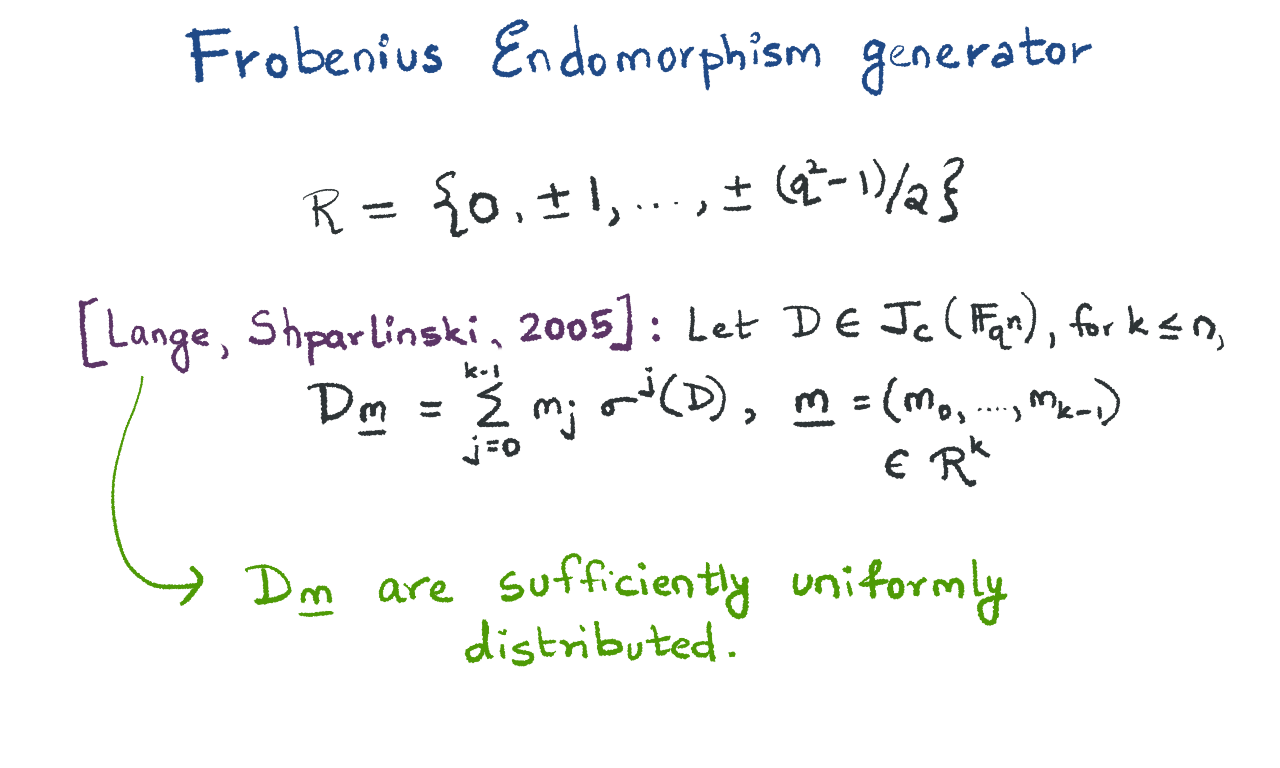 Frobenius Endomorphism generator
R = {0, ±1, ..., ± (q²-1)/2}
[Lange, Shparlinski, 2005]: Let D ∈ J_C(𝔽_{qⁿ}), for k ≤ n,
D_m̲ = ∑_{j=0}^{k-1} m_j σ^j(D), m̲ = (m_0, ..., m_{k-1})
∈ R^k
D_m̲ are sufficiently uniformly
distributed.